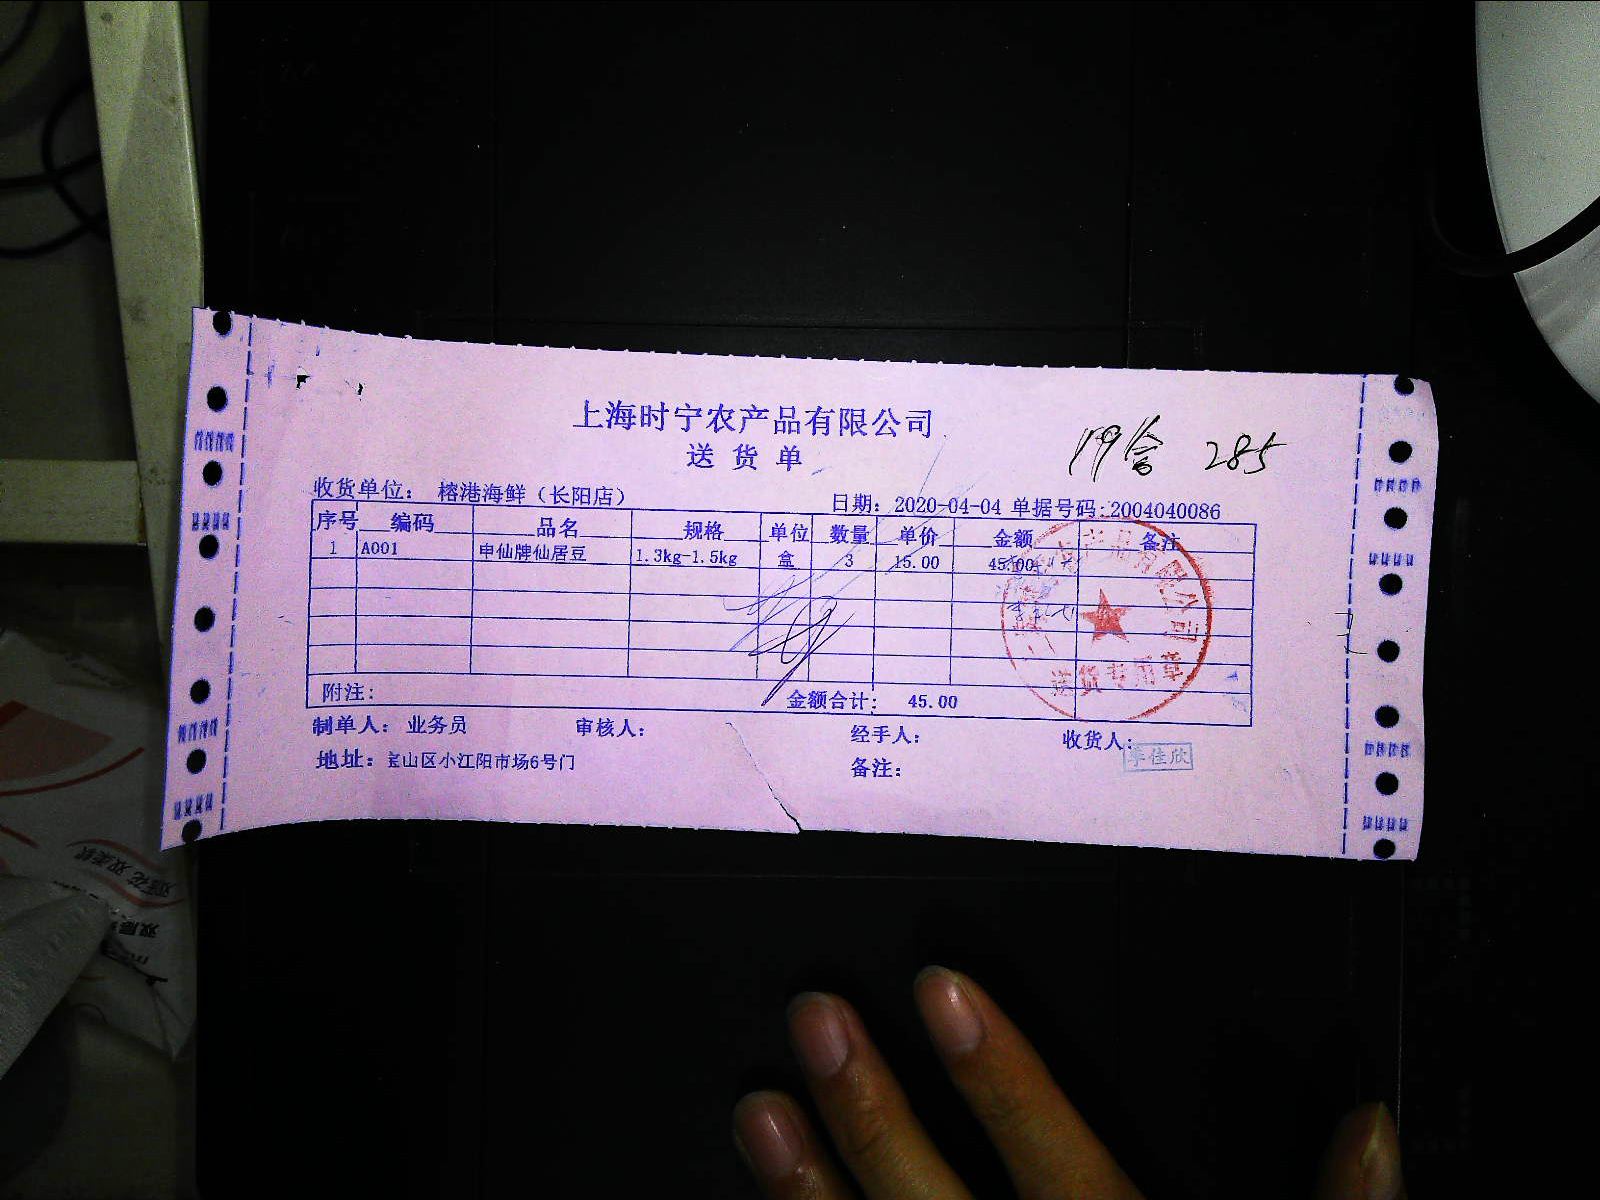 上海时宁农产品有限公司
送货单
19盒 285
收货单位： 榕港海鲜（长阳店）
日期： 2020-04-04 单据号码:2004040086
序号 编码 品名 规格 单位 数量 单价 金额 备注
1 A001 申仙牌仙居豆 1.3kg-1.5kg 盒 3 15.00 45.00
农产品有限公司
送货专用章
附注: 金额合计: 45.00
制单人： 业务员 审核人： 经手人： 收货人:
李佳欣
地址： 宝山区小江阳市场6号门 备注：